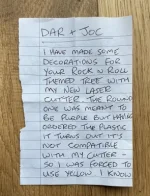 DAR + JOC
I HAVE MADE SOME
DECORATIONS FOR
YOUR ROCK N ROLL
THEMED TREE WITH
MY NEW LASER
CUTTER - THE ROUND
ONE WAS MEANT TO
BE PURPLE BUT HAVING
ORDERED THE PLASTIC
IT TURNS OUT IT'S
NOT COMPATIBLE
WITH MY CUTTER -
SO I WAS FORCED TO
USE YELLOW. I KNOW